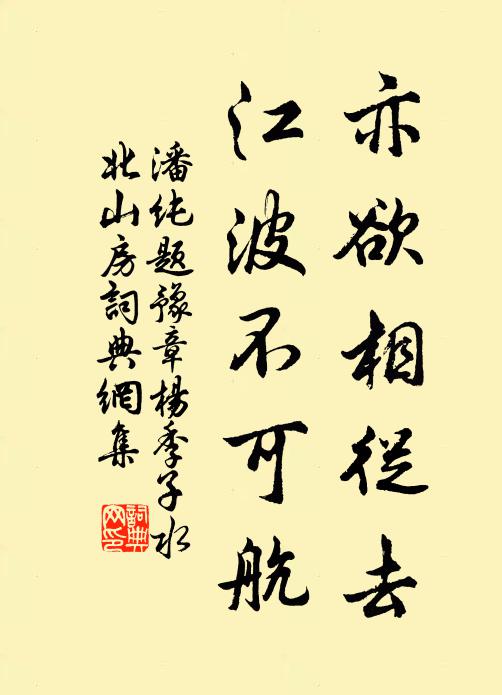 亦欲相從去
江波不可航
潘純题豫章楊季子水
北山房詞典網集
詞典网印